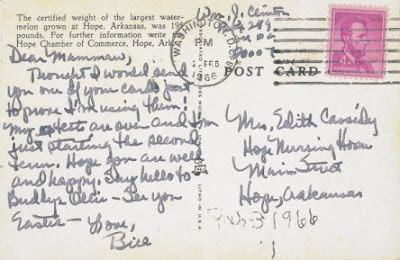 The certified weight of the largest water-
melon grown at Hope, Arkansas, was 195
pounds. For further information write
Hope Chamber of Commerce, Hope, Ark.
Dear Mammaw,
Thought I would send
you one of your cards just
to prove I'm using them.
My tests are over and I'm
just starting the second
term. Hope you are well
and happy. Say hello to
Buddy & Ollie - See you
Easter - Love,
Bill
Wm. J. Clinton
WASHINGTON, D.C.
PM
FEB
1966
POST CARD
Mrs. Edith Cassidy
Hope Nursing Home
Main Street
Hope, Arkansas
Feb 3 1966
LITHO IN U.S.A.